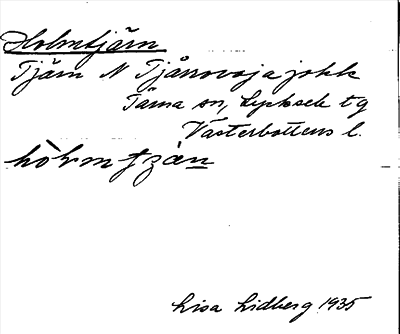 Holmtjärn
Tjärn N Tjåruvajajokk
Tärna sn, Lycksele tg
Västerbottens l.
Lisa Lidberg 1935